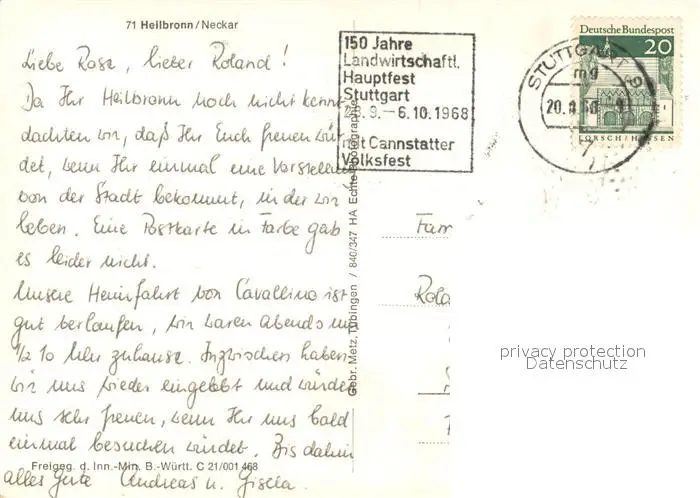 71 Heilbronn/Neckar
Liebe Rosa, lieber Roland!
Da Ihr Heilbronn noch nicht kennt
dachten wir, daß Ihr Euch freuen wür
det, wenn Ihr einmal eine Vorstellun
von der Stadt bekommt, in der wir
leben. Eine Postkarte in Farbe gab
es leider nicht.
Unsere Heimfahrt von Cavallino ist
gut verlaufen, wir waren Abends um
1/2 10 Uhr zuhause. Inzwischen haben
wir uns wieder eingelebt und würden
uns sehr freuen, wenn Ihr uns bald
einmal besuchen würdet. Bis dahin
alles Gute Andreas u. Gisela.
Freigeg. d. Inn.-Min. B.-Württ. C 21/001 468
Gebr. Metz, Tübingen / 840/347 HA Echte Photographie
150 Jahre
Landwirtschaftl.
Hauptfest
Stuttgart
28.9.–6.10.1968
mit Cannstatter
Volksfest
STUTTGART 9
mg
Deutsche Bundespost
20
LORSCH/HESSEN
Fam
Rola
privacy protection
Datenschutz